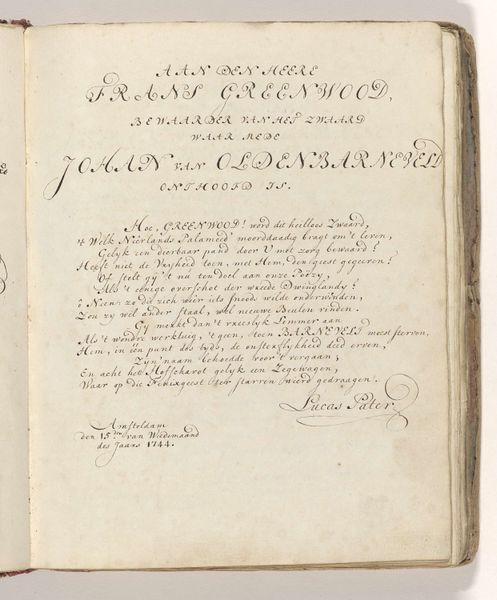 AAN DEN HEERE
FRANS GREENWOOD,
BEWAARDER VAN HET ZWAARD
WAAR MEDE
JOHAN VAN OLDENBARNEVELD
ONTHOOFD IS.
Hoe, GREENWOOD! word dit heilloos Zwaard,
't Welk Neêrlands Palameed moorddaadig bragt om 't leven,
Gelyk een dierbaar pand door U met zorg bewaard?
Heeft niet de Vryheid toen, met Hem, den geest gegeeven?
Of stelt gy 't nu ten doel aan onze Poëzy,
Als 't eenige overschot der wreede Dwinglandy?
ô Neen: zo dit zich weêr iets snoods wilde onderwinden,
Zou zy wel ander staal, wel nieuwe Beulen vinden.
Gy maakt dan 't vreeslyk Lemmer aan
Als 't wondre werktuig, 't geen, toen BARNEVELD moest sterven,
Hem, in één punt des tyds, de onsterflykheid deed erven,
Zyn' naam behoedde voor 't vergaan;
En acht het Hofschavot gelyk een Zegewagen,
Waar op die Fenixgeest ter starren wierd gedraagen.
Lucas Pater.
Amsteldam
den 15den van Wiedemaand
des Jaars 1744.